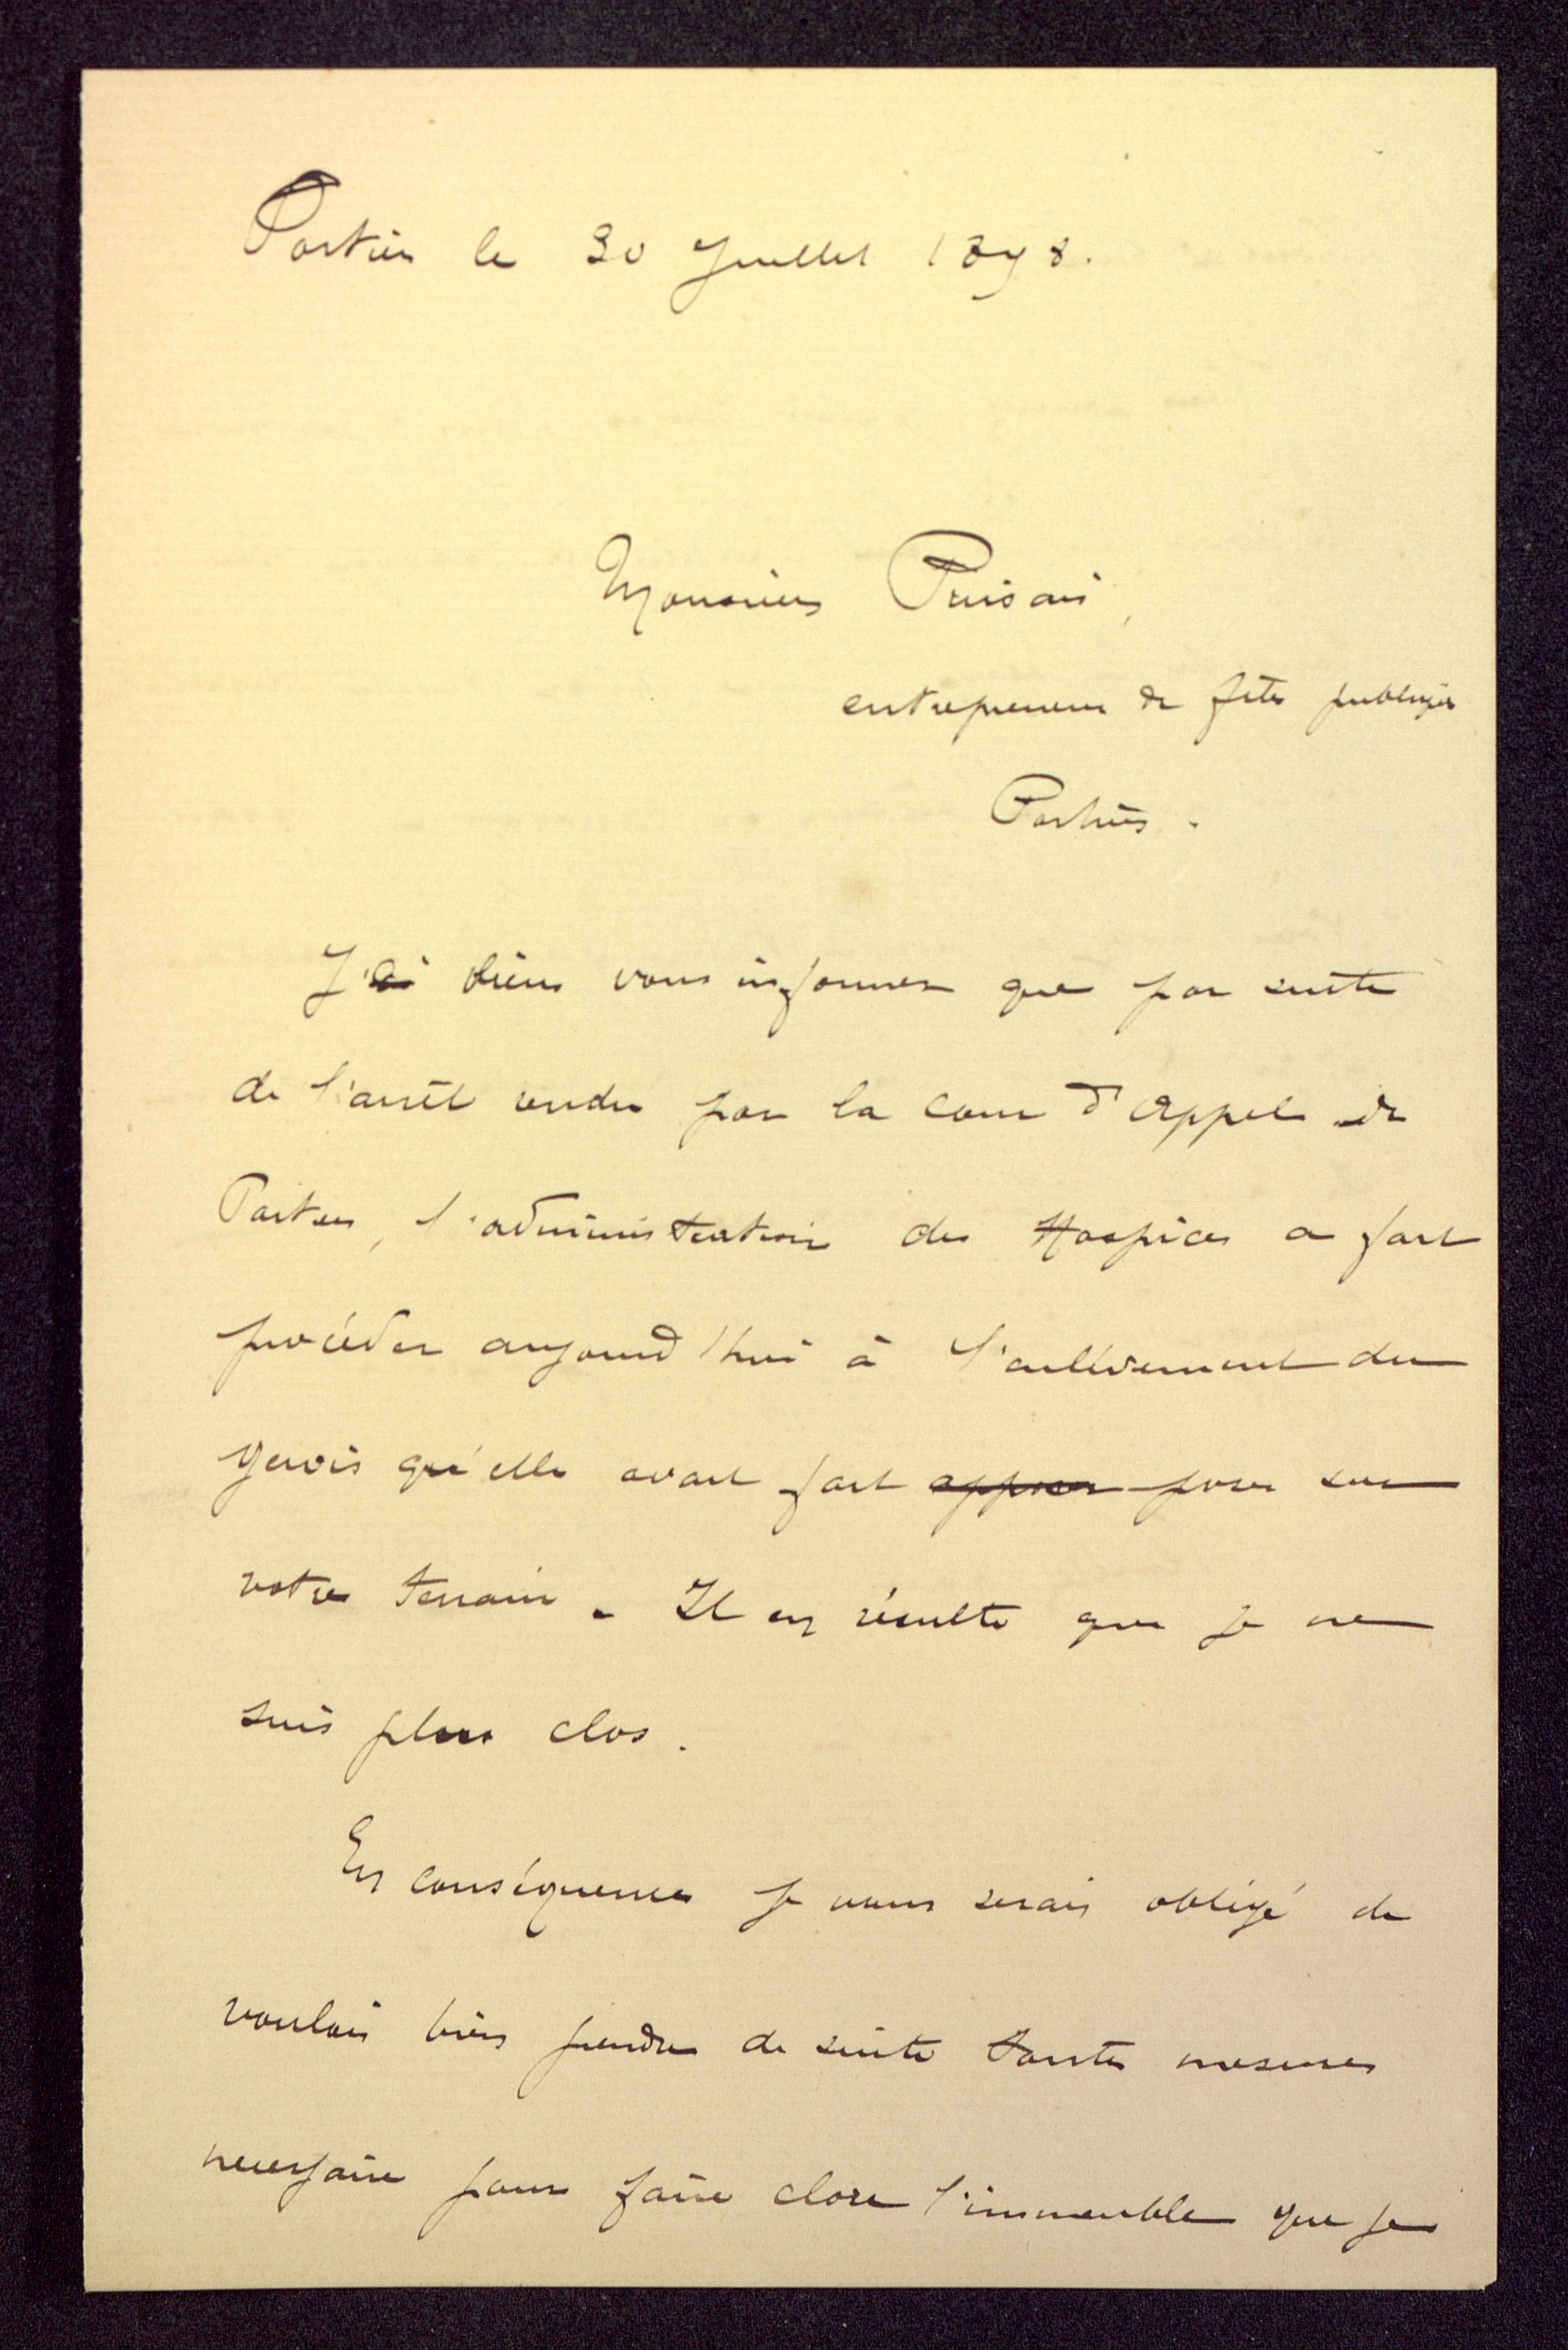 Poitiers le 30 Juillet 1898.
Monsieur Puisais,
entrepreneur de fêtes publiques
Poitiers.
J'ai viens vous informer que par suite
de l'arrêt rendu par la cour d'appel de
Poitiers, l'administration des Hospices a fait
procéder aujourd'hui à l'enlèvement du
qu'elle avait fait apposer poser sur
votre terrain. Il en résulte que je ne
suis plus clos.
En conséquence je vous serais obligé de
vouloir bien prendre de suite toutes mesures
necessaire pour faire clore l'immeuble que je